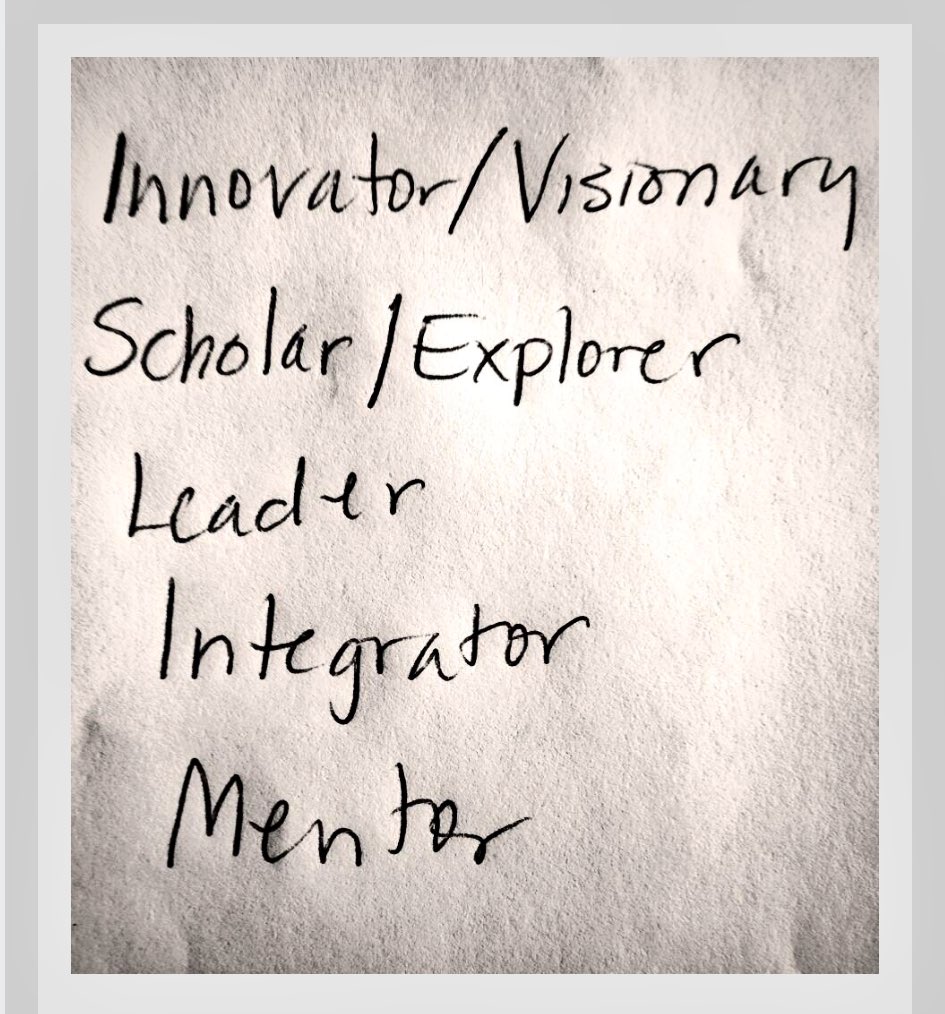 Innovator/Visionary
Scholar/Explorer
Leader
Integrator
Mentor